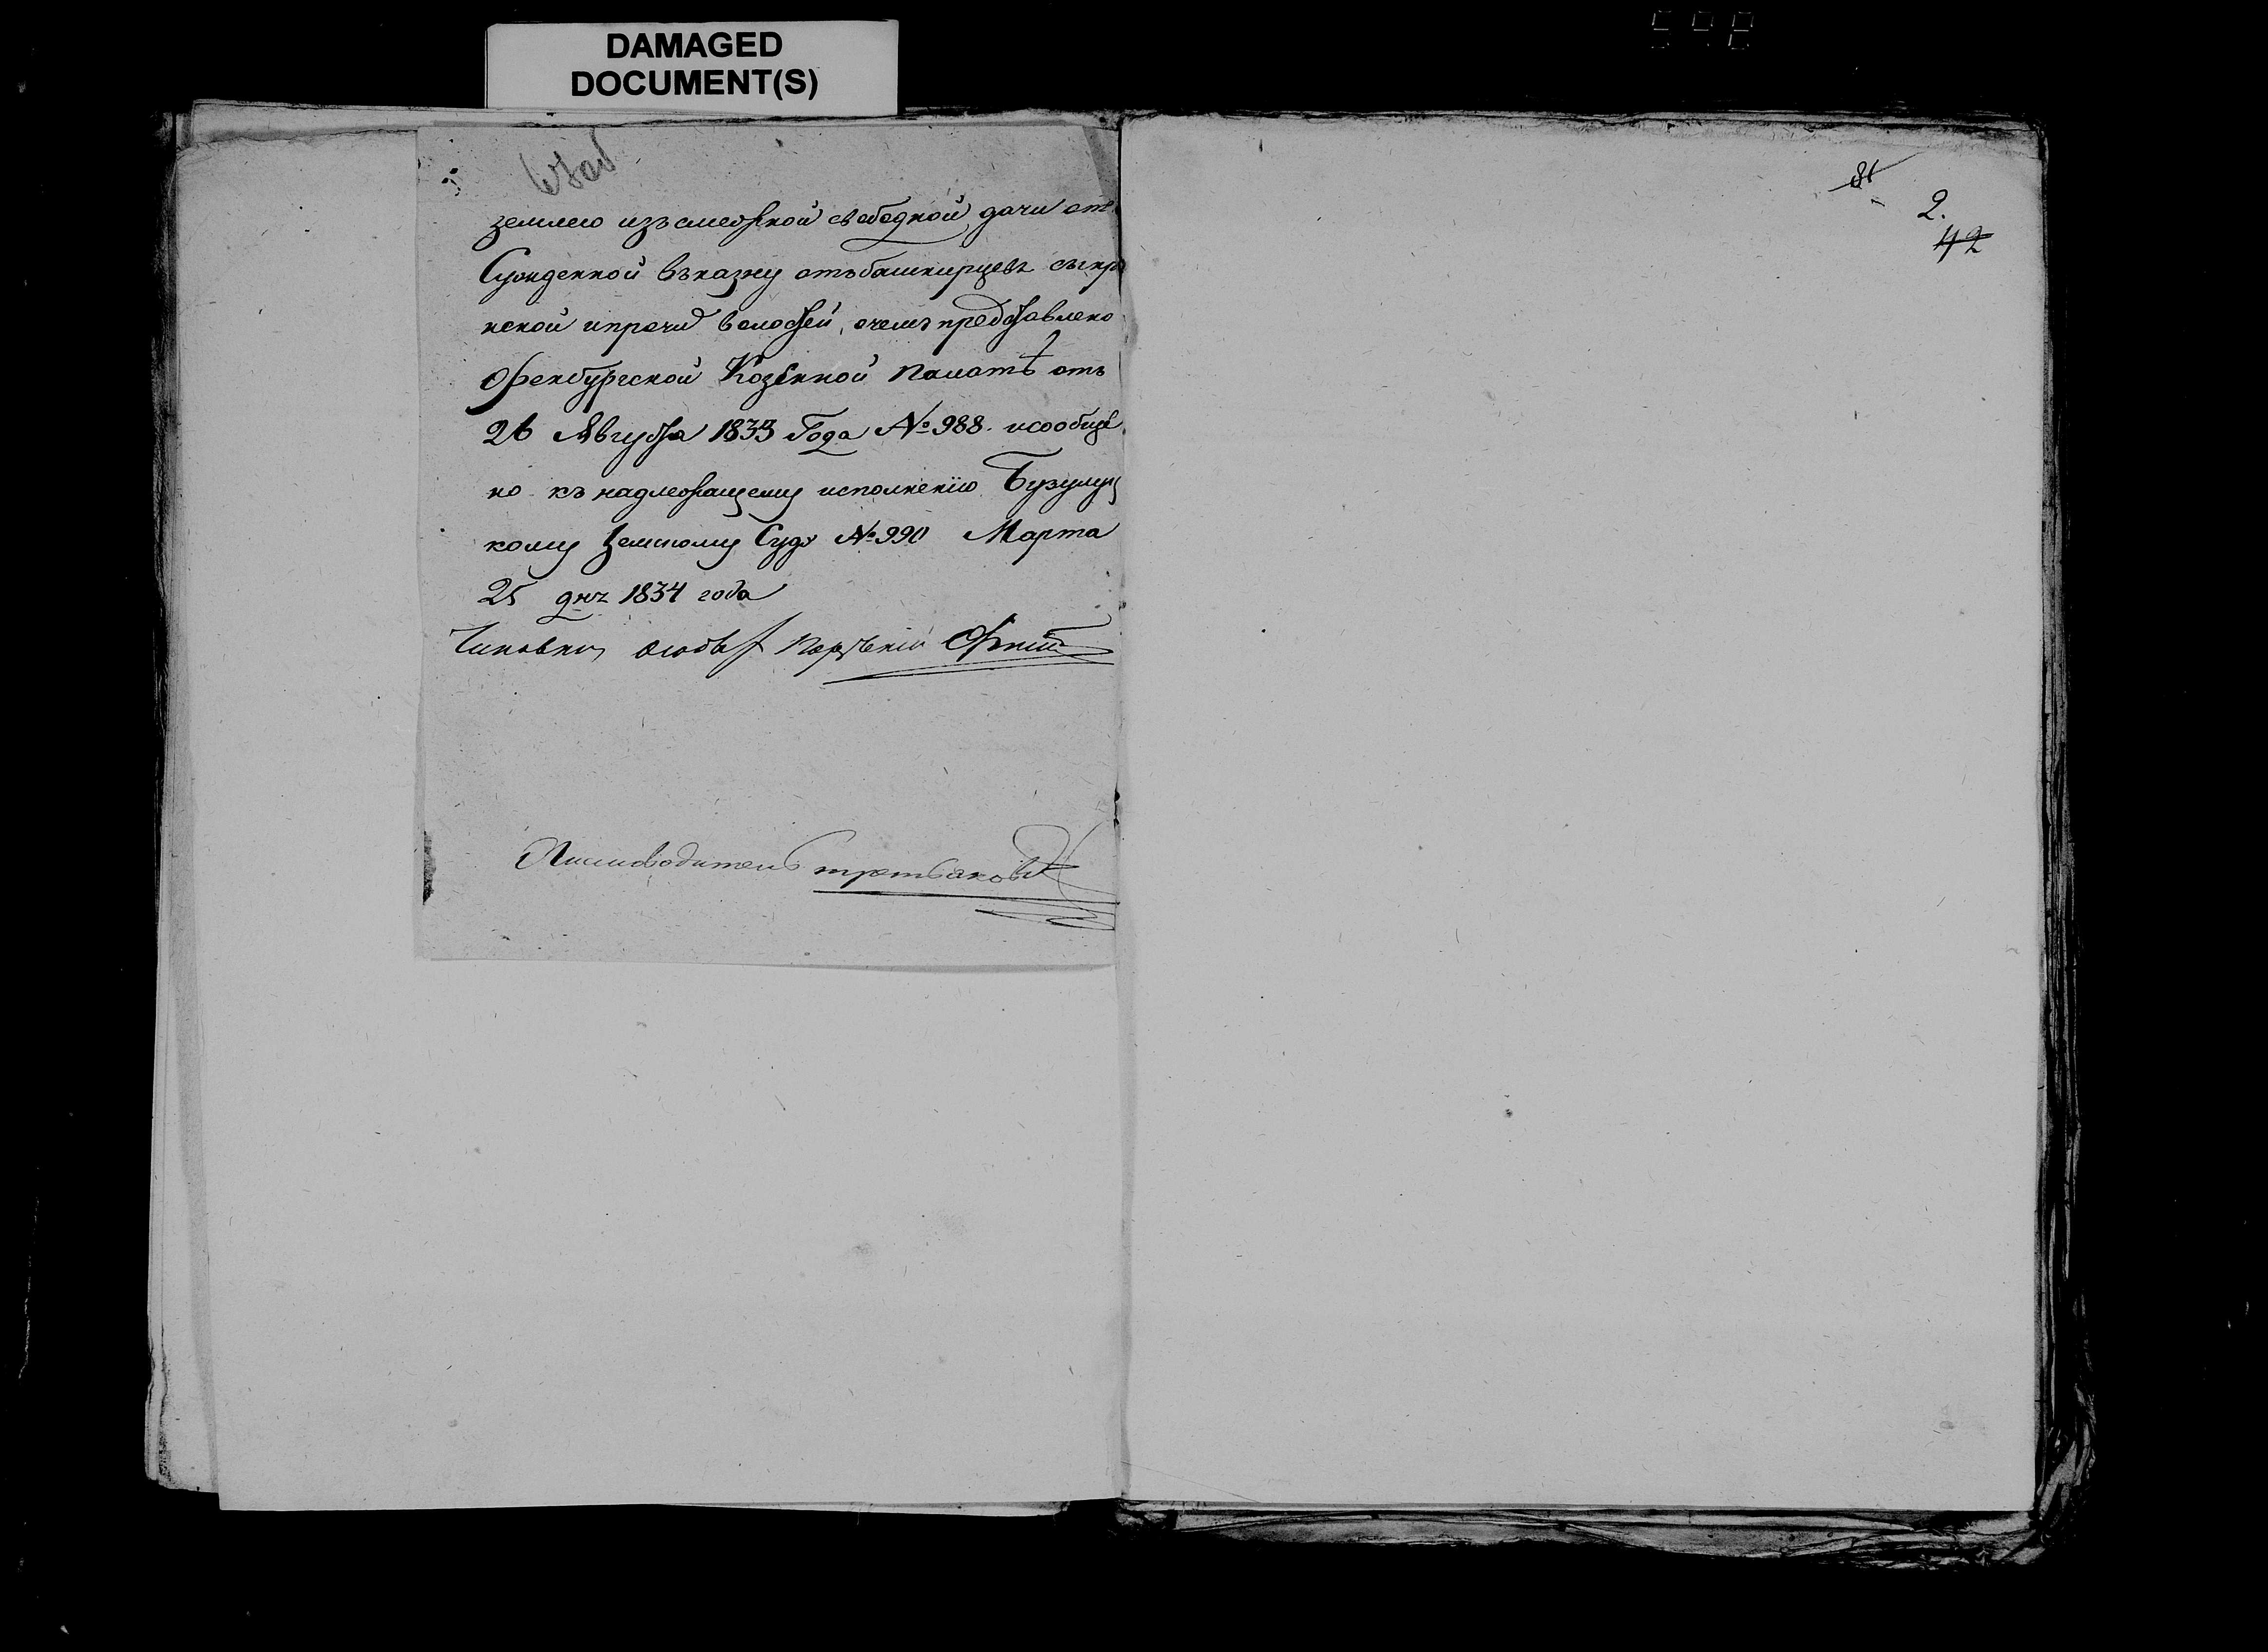 DAMAGED
DOCUMENT(S)
землею изъ смежной свободной дачи от
Сужденной въ казну отъ башкирцевъ
нской и прочи волостей, о чемъ представлено
Оренбургской Козенной Палатѣ отъ
26 Августа 1833 Года № 988. и сообще
но къ надлежащему исполнению Бузулуц
кому Земскому Суду № 990 Марта
25 дня 1834 года
Чиновник особых Порученій
Писмоводитель третьяковъ
2.
42